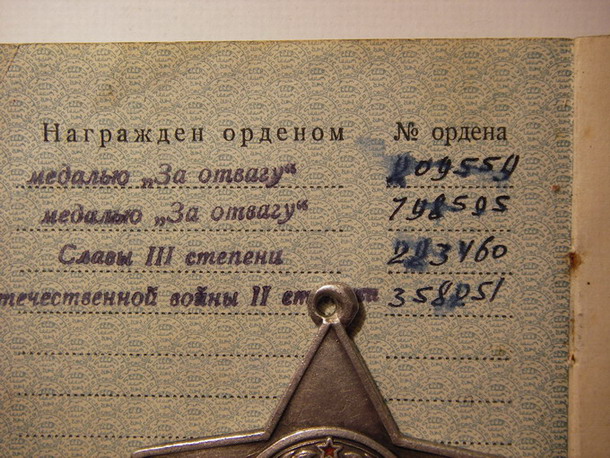 Награжден орденом № ордена
медалью „За отвагу“ 209559
медалью „За отвагу“ 798595
Славы III степени 223460
течественной войны II 358251